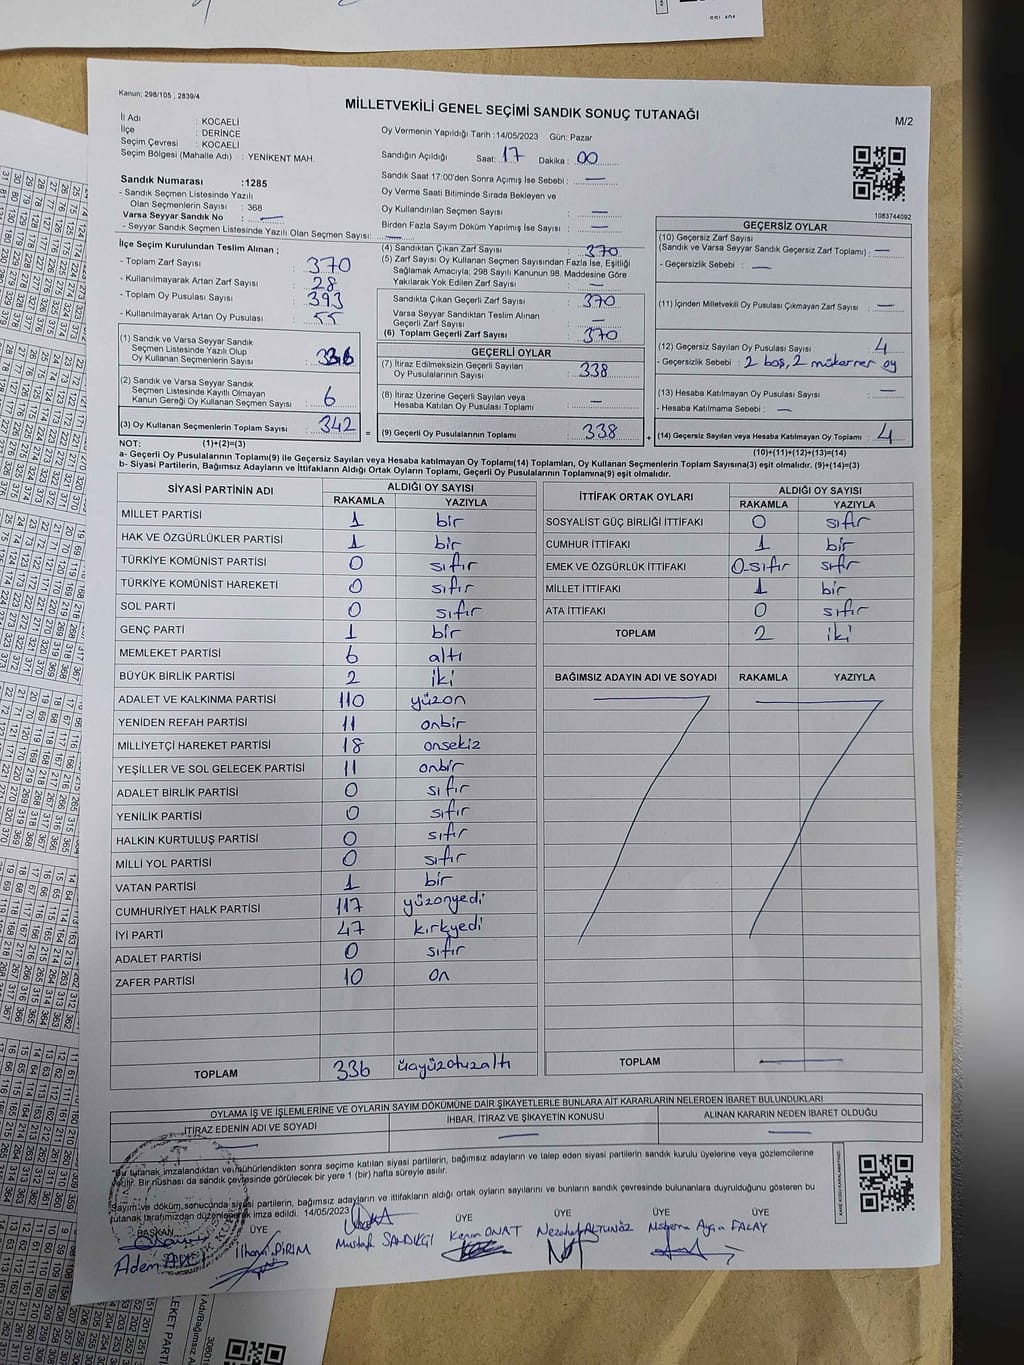 Kanun; 298/105 , 2839/4
MİLLETVEKİLİ GENEL SEÇİMİ SANDIK SONUÇ TUTANAĞI
M/2
İl Adı : KOCAELİ
İlçe : DERİNCE
Seçim Çevresi : KOCAELİ
Seçim Bölgesi (Mahalle Adı) : YENİKENT MAH.
Oy Vermenin Yapıldığı Tarih : 14/05/2023 Gün: Pazar
Sandığın Açıldığı Saat: 17 Dakika : 00
Sandık Saat 17:00'den Sonra Açımış İse Sebebi : —
Oy Verme Saati Bitiminde Sırada Bekleyen ve
Oy Kullandırılan Seçmen Sayısı : —
Birden Fazla Sayım Döküm Yapılmış İse Sayısı : —
1083744092
Sandık Numarası :1285
- Sandık Seçmen Listesinde Yazılı
Olan Seçmenlerin Sayısı : 368
Varsa Seyyar Sandık No : —
- Seyyar Sandık Seçmen Listesinde Yazılı Olan Seçmen Sayısı: —
İlçe Seçim Kurulundan Teslim Alınan ;
- Toplam Zarf Sayısı : 370
- Kullanılmayarak Artan Zarf Sayısı : 28
- Toplam Oy Pusulası Sayısı : 393
- Kullanılmayarak Artan Oy Pusulası : 55
(1) Sandık ve Varsa Seyyar Sandık
Seçmen Listesinde Yazılı Olup
Oy Kullanan Seçmenlerin Sayısı : 336
(2) Sandık ve Varsa Seyyar Sandık
Seçmen Listesinde Kayıtlı Olmayan
Kanun Gereği Oy Kullanan Seçmen Sayısı : 6
(3) Oy Kullanan Seçmenlerin Toplam Sayısı : 342
(4) Sandıktan Çıkan Zarf Sayısı : 370
(5) Zarf Sayısı Oy Kullanan Seçmen Sayısından Fazla İse, Eşitliği
Sağlamak Amacıyla; 298 Sayılı Kanunun 98. Maddesine Göre
Yakılarak Yok Edilen Zarf Sayısı : —
Sandıkta Çıkan Geçerli Zarf Sayısı : 370
Varsa Seyyar Sandıktan Teslim Alınan
Geçerli Zarf Sayısı : —
(6) Toplam Geçerli Zarf Sayısı : 370
GEÇERLİ OYLAR
(7) İtiraz Edilmeksizin Geçerli Sayılan
Oy Pusulalarının Sayısı : 338
(8) İtiraz Üzerine Geçerli Sayılan veya
Hesaba Katılan Oy Pusulası Toplamı : —
= (9) Geçerli Oy Pusulalarının Toplamı : 338 +
GEÇERSİZ OYLAR
(10) Geçersiz Zarf Sayısı
(Sandık ve Varsa Seyyar Sandık Geçersiz Zarf Toplamı) : —
- Geçersizlik Sebebi : —
(11) İçinden Milletvekili Oy Pusulası Çıkmayan Zarf Sayısı : —
(12) Geçersiz Sayılan Oy Pusulası Sayısı : 4
- Geçersizlik Sebebi : 2 boş, 2 mükerrer oy
(13) Hesaba Katılmayan Oy Pusulası Sayısı : —
- Hesaba Katılmama Sebebi : —
(14) Geçersiz Sayılan veya Hesaba Katılmayan Oy Toplamı : 4
NOT: (1)+(2)=(3)
(10)+(11)+(12)+(13)=(14)
a- Geçerli Oy Pusulalarının Toplamı(9) ile Geçersiz Sayılan veya Hesaba katılmayan Oy Toplamı(14) Toplamları, Oy Kullanan Seçmenlerin Toplam Sayısına(3) eşit olmalıdır. (9)+(14)=(3)
b- Siyasi Partilerin, Bağımsız Adayların ve İttifakların Aldığı Ortak Oyların Toplamı, Geçerli Oy Pusulalarının Toplamına(9) eşit olmalıdır.
SİYASİ PARTİNİN ADI ALDIĞI OY SAYISI
RAKAMLA YAZIYLA
MİLLET PARTİSİ 1 bir
HAK VE ÖZGÜRLÜKLER PARTİSİ 1 bir
TÜRKİYE KOMÜNİST PARTİSİ 0 sıfır
TÜRKİYE KOMÜNİST HAREKETİ 0 sıfır
SOL PARTİ 0 sıfır
GENÇ PARTİ 1 bir
MEMLEKET PARTİSİ 6 altı
BÜYÜK BİRLİK PARTİSİ 2 iki
ADALET VE KALKINMA PARTİSİ 110 yüzon
YENİDEN REFAH PARTİSİ 11 onbir
MİLLİYETÇİ HAREKET PARTİSİ 18 onsekiz
YEŞİLLER VE SOL GELECEK PARTİSİ 11 onbir
ADALET BİRLİK PARTİSİ 0 sıfır
YENİLİK PARTİSİ 0 sıfır
HALKIN KURTULUŞ PARTİSİ 0 sıfır
MİLLİ YOL PARTİSİ 0 sıfır
VATAN PARTİSİ 1 bir
CUMHURİYET HALK PARTİSİ 117 yüzonyedi
İYİ PARTİ 47 kırkyedi
ADALET PARTİSİ 0 sıfır
ZAFER PARTİSİ 10 on
TOPLAM 336 üçyüzotuzaltı
İTTİFAK ORTAK OYLARI ALDIĞI OY SAYISI
RAKAMLA YAZIYLA
SOSYALİST GÜÇ BİRLİĞİ İTTİFAKI 0 sıfır
CUMHUR İTTİFAKI 1 bir
EMEK VE ÖZGÜRLÜK İTTİFAKI 0-sıfır sıfır
MİLLET İTTİFAKI 1 bir
ATA İTTİFAKI 0 sıfır
TOPLAM 2 iki
BAĞIMSIZ ADAYIN ADI VE SOYADI RAKAMLA YAZIYLA
TOPLAM —
OYLAMA İŞ VE İŞLEMLERİNE VE OYLARIN SAYIM DÖKÜMÜNE DAİR ŞİKAYETLERLE BUNLARA AİT KARARLARIN NELERDEN İBARET BULUNDUKLARI
İTİRAZ EDENİN ADI VE SOYADI İHBAR, İTİRAZ VE ŞİKAYETİN KONUSU ALINAN KARARIN NEDEN İBARET OLDUĞU
— — —
*Bu tutanak imzalandıktan ve mühürlendikten sonra seçime katılan siyasi partilerin, bağımsız adayların ve talep eden siyasi partilerin sandık kurulu üyelerine veya gözlemcilerine
verilir. Bir nüshası da sandık çevresinde görülecek bir yere 1 (bir) hafta süreyle asılır.
Sayım ve döküm sonucunda siyasi partilerin, bağımsız adayların ve ittifakların aldığı ortak oyların sayılarını ve bunların sandık çevresinde bulunanlara duyrulduğunu gösteren bu
tutanak tarafımızdan düzenlenerek imza edildi. 14/05/2023
BAŞKAN ÜYE ÜYE ÜYE ÜYE
Adem AVCI İlhami PİRİM Mustafa SANDIKGI Kerim ONAT Nezahat ALTUNÖZ Meryema Ayşin FALAY